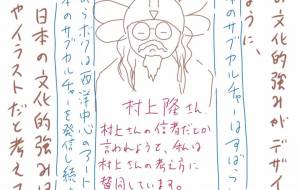 の文化的強みがデザイ
本のサブカルチャーはすばら
ように、
村上隆さん
村上さんの信者だとか
言われようと、私は
村上さんの考え方に
賛同しています。
らボクは西洋中心のアート
のサブカルチャーを発信し続
日本の文化的強みは
やイラストだと考えて